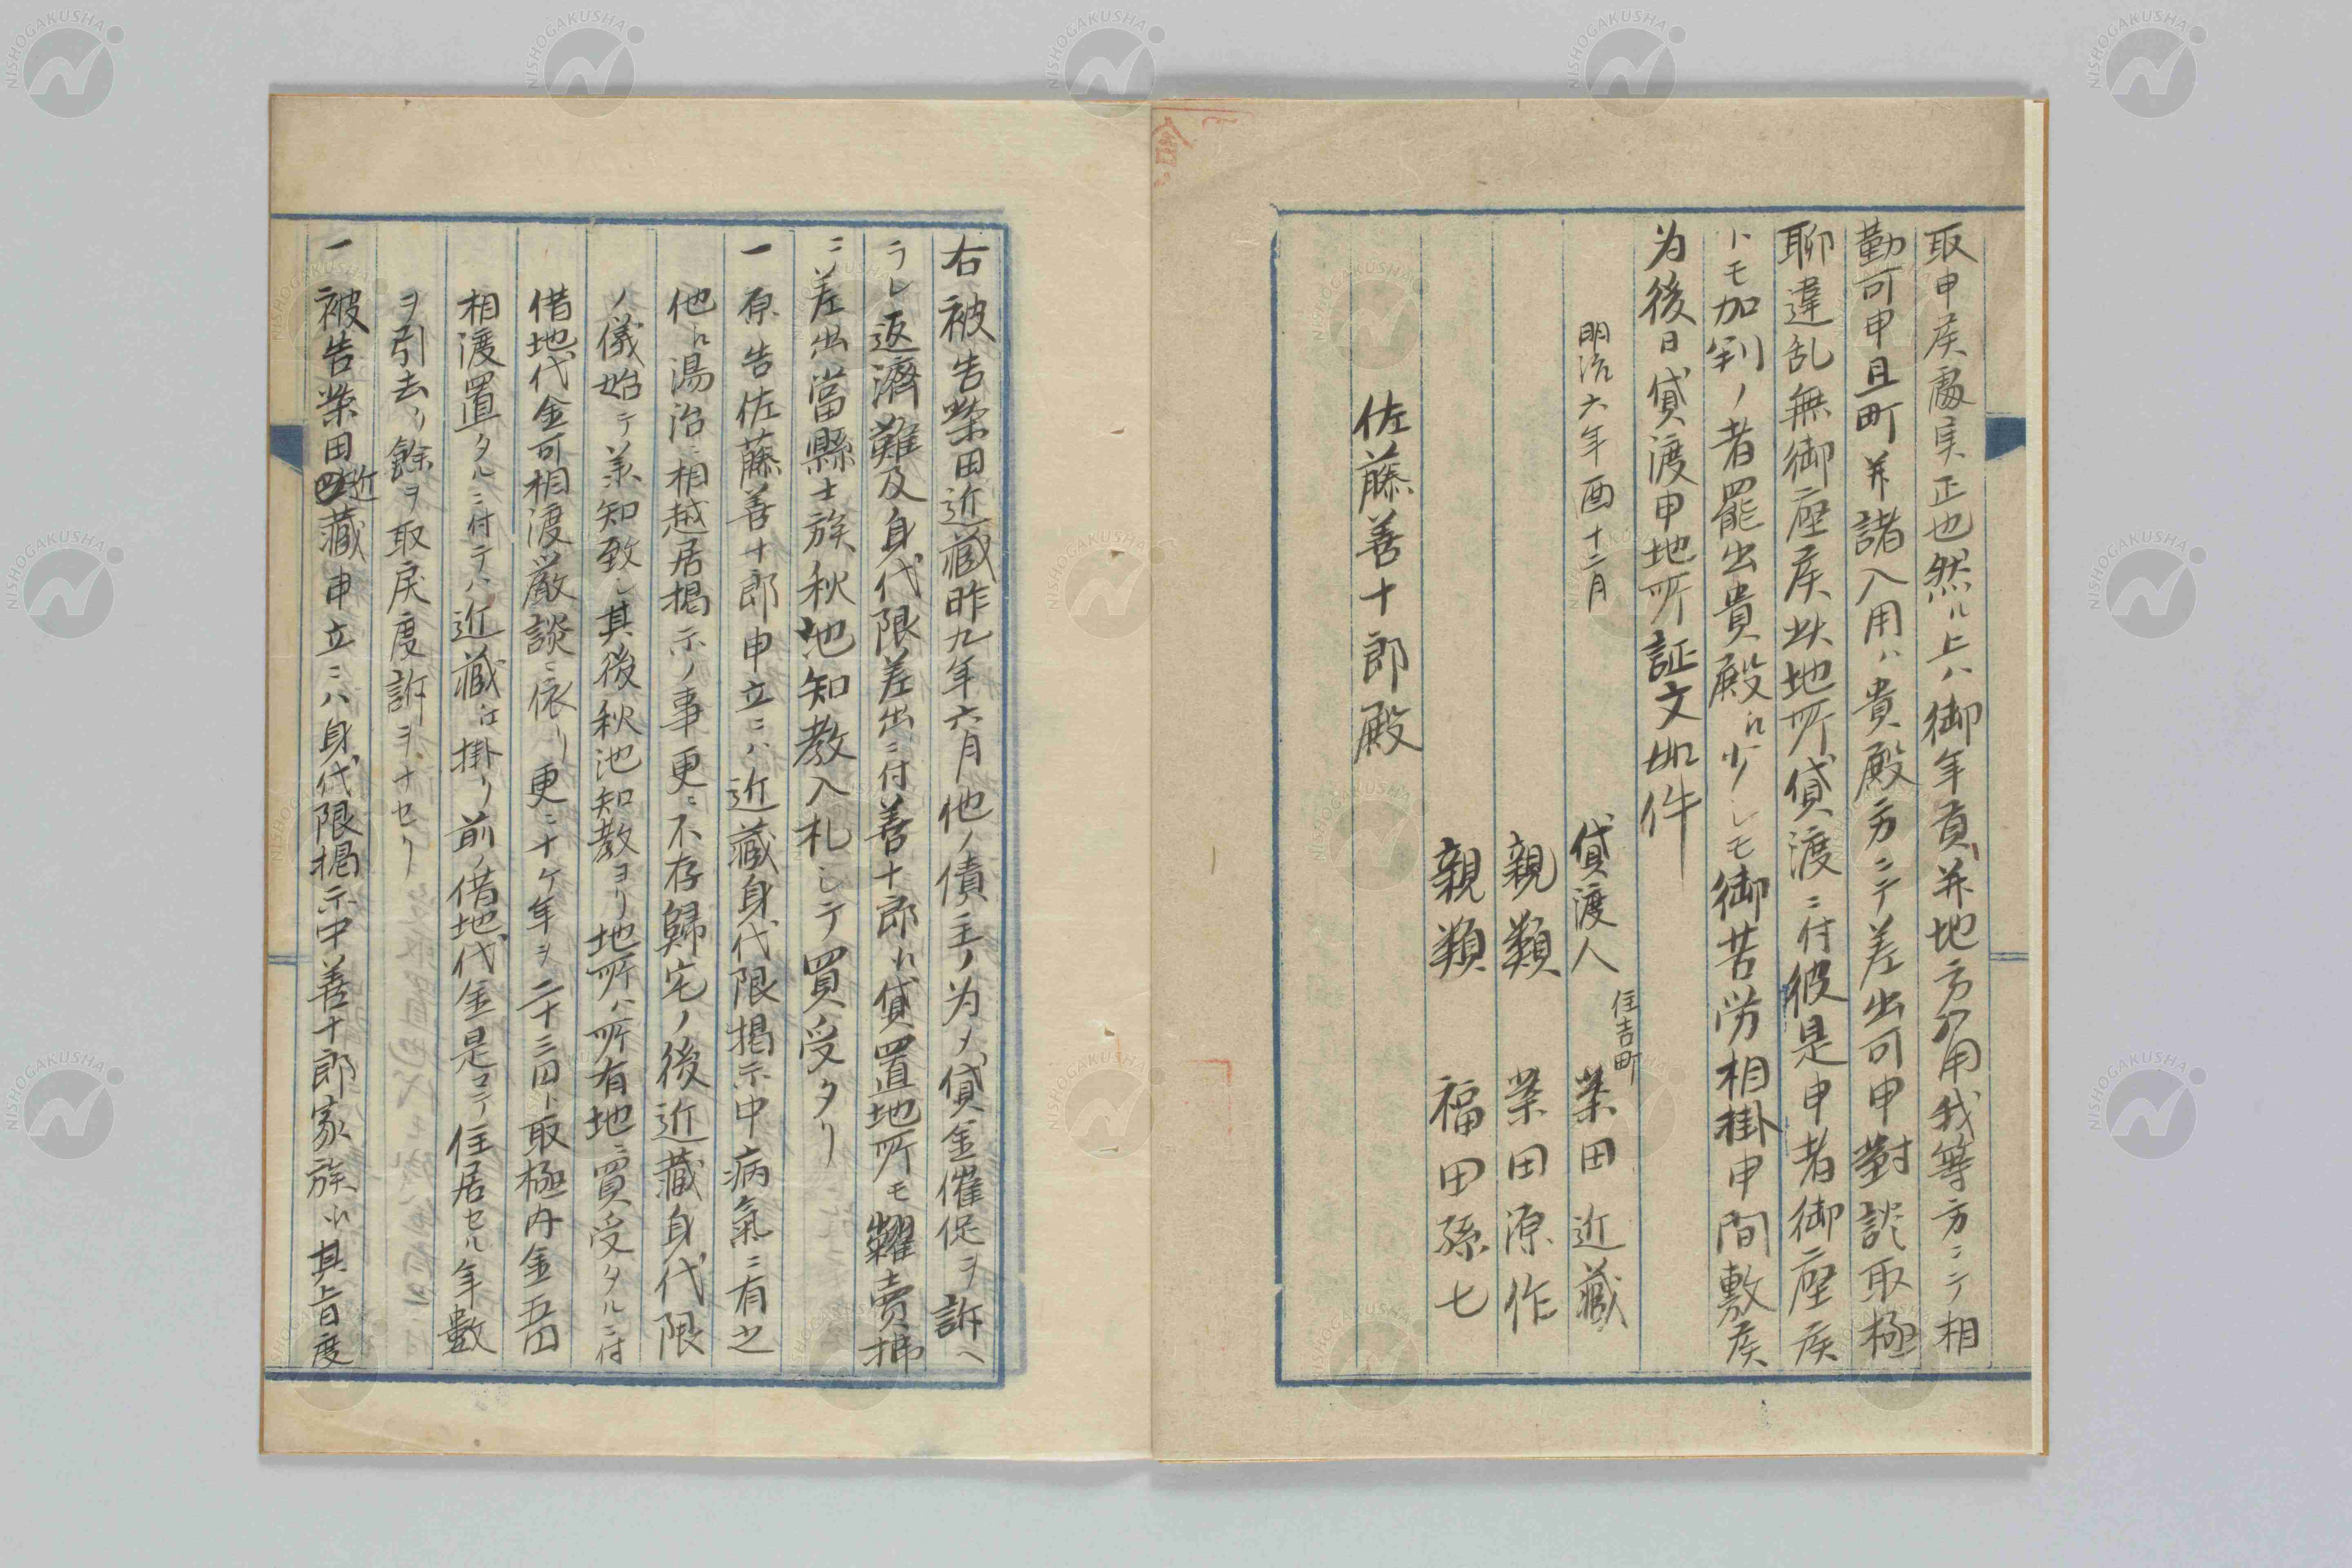 取申候處実正也然ル上ハ御年貢并地方分用我等方ニテ相
勤可申且町并諸入用ハ貴殿方ニテ差出可申對談取極
聊違乱無御座候此地所貸渡ニ付彼是申者御座候
トモ加判ノ者罷出貴殿江少シモ御苦労相掛申間敷候
为後日貸渡申地所証文如件
明治六年酉十二月
貸渡人 住吉町 柴田近藏
親類 柴田源作
親類 福田孫七
佐藤善十郎殿
右被告柴田近藏昨九年六月他ノ債主ノ为メ貸金催促ヲ訴ヘ
ラレ返濟難及身代限差出ニ付善十郎江貸置地所モ糶賣拂
ニ差出當縣士族秋池知教入札シテ買受タリ
一原告佐藤善十郎申立ニハ近藏身代限掲示中病氣ニ有之
他江湯治ニ相越居掲示ノ事更ニ不存歸宅ノ後近藏身代限
ノ儀始テ羕知致シ其後秋池知教ヨリ地所ハ所有地ニ買受タルニ付
借地代金可相渡厳談ニ依リ更ニ十ケ年ヲ二十三円ト取極内金五円
相渡置タルニ付テハ近藏江掛リ前ノ借地代金是マテ住居セル年數
ヲ引去リ餘ヲ取戻度訴ヲナセリ
一被告柴田近藏申立ニハ身代限掲示中善十郎家族江其旨度